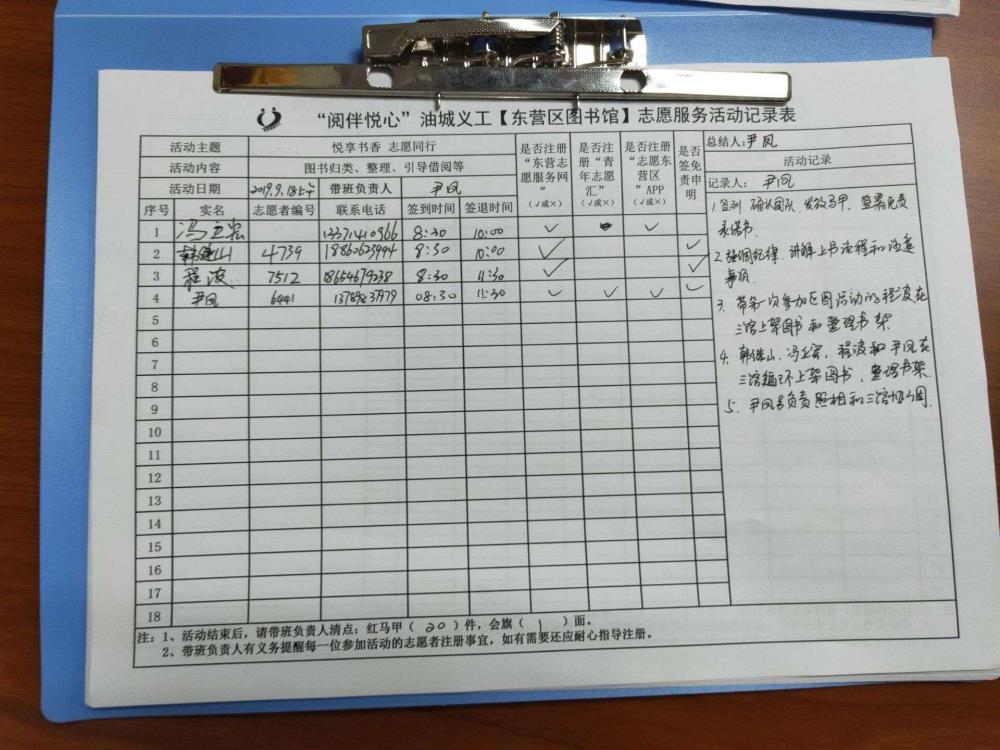 “阅伴悦心”油城义工【东营区图书馆】志愿服务活动记录表
活动主题 悦享书香 志愿同行
活动内容 图书归类、整理、引导借阅等
活动日期 2019.9.18上午 带班负责人 尹凤
是否注册“东营志愿服务网”（√或×）
是否注册“青年志愿汇”（√或×）
是否注册“志愿东营区”APP（√或×）
是否签免责申明
总结人：尹凤
活动记录
记录人：尹凤
序号 实名 志愿者编号 联系电话 签到时间 签退时间
1 冯 13371410966 8:30 10:00 √ √
2 韩健山 4739 18860623994 8:30 10:00 √ √
3 程波 7512 18654679238 8:30 11:30 √ √
4 尹凤 6441 08:30 11:30 √ √ √ √
5
6
7
8
9
10
11
12
13
14
15
16
17
18
1.签到 确认团队、发放马甲、签署免责
承诺书.
2.强调纪律、讲解上书流程和注意
事项
3.带第一次参加区图活动的程波在
三馆上架图书和整理书架
4.韩健山、冯、程波和尹凤在
三馆循环上架图书、整理书架.
5.尹凤负责照相和三馆协调.
注：1、活动结束后，请带班负责人清点：红马甲（20）件，会旗（1）面。
2、带班负责人有义务提醒每一位参加活动的志愿者注册事宜，如有需要还应耐心指导注册。